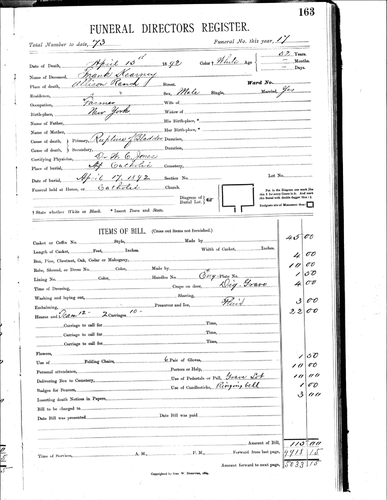 163
FUNERAL DIRECTORS REGISTER.
Total Number to date, 73 Funeral No. this year, 17
Date of Death, April 13th 1892 Color † White Age 52 Years
Months
Days
Name of Deceased, Frank Kearney
Place of death, Street, Ward No.
Residence, " Sex, Male Single, Married, Yes
Occupation, Farmer Wife of
Birthplace, New York Widow of
Name of Father, His Birthplace, *
Name of Mother, Her Birthplace, *
Cause of death, Primary, Rupture of Bladder Duration,
Cause of death, Secondary, Duration,
Certifying Physician, Dr. W. E. Jones
Place of burial, Catholic Cemetery,
Date of burial, April 17, 1892 Section No. Lot No.
Funeral held at Home, or Catholic Church.
Diagram of Burial Lot
† State whether White or Black. * Insert Town and State.
ITEMS OF BILL, (Cross out Items not furnished.)
Casket or Coffin No. Style, Made by 45 00
Length of Casket, Feet, Inches. Width of Casket, Inches.
Box, Pine, Chestnut, Oak, Cedar or Mahogany, 4 00
Robe, Shroud, or Dress No. Color, Made by 10 00
Lining No. Color, Handles No. Eng Plate No. 1 50
Time of Dressing, Crape on door, Dig Grave 4 00
Washing and laying out, Shaving,
Embalming, Preserver and Ice, Fluid 3 00
Hearse and Team 12 - 2 Carriages 10 - 22 00
Carriage to call for Time,
Carriage to call for Time,
Carriage to call for Time,
Carriage to call for Time,
Flowers,
Use of Folding Chairs, 6 Pair of Gloves, 1 50
Personal attendance, Porters or Help, 10 00
Delivering Box to Cemetery, Use of Pedestals or Pall, Grave Lot 10 00
Use of Candlesticks, Ringing bell 1 00
Inserting death Notices in Papers, 3 00
Bill to be charged to
Date Bill was presented Date Bill was paid
Amount of Bill, 115 00
Time of Services, A. M., P. M. Forward from last page, 4918 15
Amount forward to next page, 5033 15